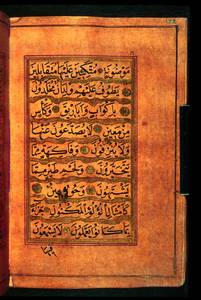 مَوْضُونَةٍ مُتَّكِئِينَ عَلَيْهَا مُتَقَابِلِينَ
يَطُوفُ عَلَيْهِمْ وِلْدَانٌ مُخَلَّدُونَ
بِأَكْوَابٍ وَأَبَارِيقَ وَكَأْسٍ
مِنْ مَعِينٍ لَا يُصَدَّعُونَ عَنْهَا
وَلَا يُنْزِفُونَ وَفَاكِهَةٍ مِمَّا
يَتَخَيَّرُونَ وَلَحْمِ طَيْرٍ مِمَّا
يَشْتَهُونَ وَحُورٌ عِينٌ
كَأَمْثَالِ اللُّؤْلُؤِ الْمَكْنُونِ جَزَاءً
بِمَا كَانُوا يَعْمَلُونَ لَا يَسْمَعُونَ
فيها